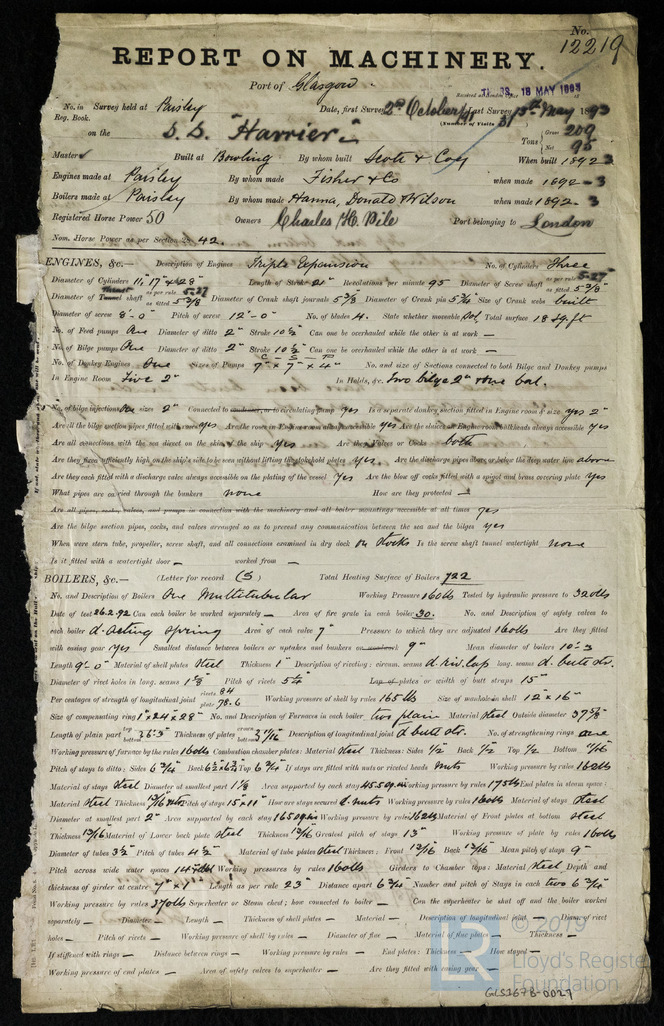 No.
12219
REPORT ON MACHINERY.
Port of Glasgow
THURS. 18 MAY 1893
No. in Survey held at Paisley Date, first Survey 2nd October Last Survey 13th May 1893
Reg. Book. (Number of Visits
on the S.S. "Harrier" Tons Gross 209 Net 95
Master Built at Bowling By whom built Scott & Coy When built 1892 3
Engines made at Paisley By whom made Fisher & Co when made 1892-3
Boilers made at Paisley By whom made Hanna, Donald & Wilson when made 1892-3
Registered Horse Power 50 Owners Charles H. Pile Port belonging to London
Nom. Horse Power as per Section 28 42.
ENGINES, &c.— Description of Engines Triple Expansion No. of Cylinders Three
Diameter of Cylinders 11" 17" & 28" Length of Stroke 21" Revolutions per minute 95 Diameter of Screw shaft as per rule 5.27 as fitted 5 3/8"
Diameter of Tunnel shaft as per rule 5.27 as fitted 5 3/8 Diameter of Crank shaft journals 5 3/8 Diameter of Crank pin 5 7/16 Size of Crank webs built
Diameter of screw 8'-0" Pitch of screw 12'-0" No. of blades 4. State whether moveable Sol. Total surface 18 sq. ft
No. of Feed pumps One Diameter of ditto 2" Stroke 10 1/2 Can one be overhauled while the other is at work —
No. of Bilge pumps One Diameter of ditto 2" Stroke 10 1/2 Can one be overhauled while the other is at work —
No. of Donkey Engines One Sizes of Pumps 7" x 7" x 4" No. and size of Suctions connected to both Bilge and Donkey pumps
In Engine Room Five 2" In Holds, &c. Two bilge 2" & one bal.
No. of bilge injections One sizes 2" Connected to condenser, or to circulating pump yes Is a separate donkey suction fitted in Engine room & size yes 2"
Are all the bilge suction pipes fitted with roses yes Are the roses in Engine room always accessible yes Are the sluices on Engine room bulkheads always accessible yes
Are all connections with the sea direct on the skin of the ship yes Are they Valves or Cocks both
Are they fixed sufficiently high on the ship's side to be seen without lifting the stokehold plates yes Are the discharge pipes above or below the deep water line above
Are they each fitted with a discharge valve always accessible on the plating of the vessel yes Are the blow off cocks fitted with a spigot and brass covering plate yes
What pipes are carried through the bunkers none How are they protected —
Are all pipes, cocks, valves, and pumps in connection with the machinery and all boiler mountings accessible at all times yes
Are the bilge suction pipes, cocks, and valves arranged so as to prevent any communication between the sea and the bilges yes
When were stern tube, propeller, screw shaft, and all connections examined in dry dock On Stocks Is the screw shaft tunnel watertight none
Is it fitted with a watertight door — worked from —
BOILERS, &c.— (Letter for record (S) Total Heating Surface of Boilers 722
No. and Description of Boilers One Multitubular Working Pressure 160 lbs Tested by hydraulic pressure to 320 lbs
Date of test 26.2.92 Can each boiler be worked separately — Area of fire grate in each boiler 30. No. and Description of safety valves to
each boiler d. acting spring Area of each valve 7" Pressure to which they are adjusted 160 lbs Are they fitted
with easing gear yes Smallest distance between boilers or uptakes and bunkers or woodwork 9" Mean diameter of boilers 10-3
Length 9'-0" Material of shell plates Steel Thickness 1" Description of riveting: circum. seams d. riv. lap long. seams d. butt str.
Diameter of rivet holes in long. seams 1 1/8" Pitch of rivets 5 1/4" Lap of plates or width of butt straps 15"
Per centages of strength of longitudinal joint rivets 84 plate 78.6 Working pressure of shell by rules 165 lbs Size of manhole in shell 12" x 16"
Size of compensating ring 1" x 24 x 28" No. and Description of Furnaces in each boiler two plain Material Steel Outside diameter 37 5/8"
Length of plain part top bottom 6'-3" Thickness of plates crown bottom Description of longitudinal joint d butt str. No. of strengthening rings one
Working pressure of furnace by the rules 160 lbs Combustion chamber plates: Material Steel Thickness: Sides 1/2 Back 1/2 Top 1/2 Bottom 11/16
Pitch of stays to ditto: Sides 6 3/4" Back 6 1/2 x 6 3/4 Top 6 3/4 If stays are fitted with nuts or riveted heads nuts Working pressure by rules 162 lbs
Material of stays Steel Diameter at smallest part 1 1/8 Area supported by each stay 45.5 sq. in Working pressure by rules 175 lbs End plates in steam space:
Material Steel Thickness Pitch of stays 15 x 11 How are stays secured d. nuts Working pressure by rules 160 lbs Material of stays Steel
Diameter at smallest part 2" Area supported by each stay 165 sq. in Working pressure by rules Material of Front plates at bottom Steel
Thickness 13/16 Material of Lower back plate Steel Thickness 13/16 Greatest pitch of stays 13" Working pressure of plate by rules 160 lbs
Diameter of tubes 3 1/2 Pitch of tubes 4 1/2 Material of tube plates Steel Thickness: Front 13/16 Back 13/16 Mean pitch of stays 9"
Pitch across wide water spaces 14" Working pressures by rules 160 lbs Girders to Chamber tops: Material Steel Depth and
thickness of girder at centre 7" x 1" Length as per rule 23" Distance apart 6 3/4 Number and pitch of Stays in each two 6 3/4"
Working pressure by rules 370 lbs Superheater or Steam chest; how connected to boiler — Can the superheater be shut off and the boiler worked
separately — Diameter — Length — Thickness of shell plates — Material — Description of longitudinal joint — Diam. of rivet
holes — Pitch of rivets — Working pressure of shell by rules — Diameter of flue — Material of flue plates — Thickness —
If stiffened with rings — Distance between rings — Working pressure by rules — End plates: Thickness — How stayed —
Working pressure of end plates — Area of safety valves to superheater — Are they fitted with easing gear —
© 2019
Lloyd's Register
Foundation
GLS1678-0029